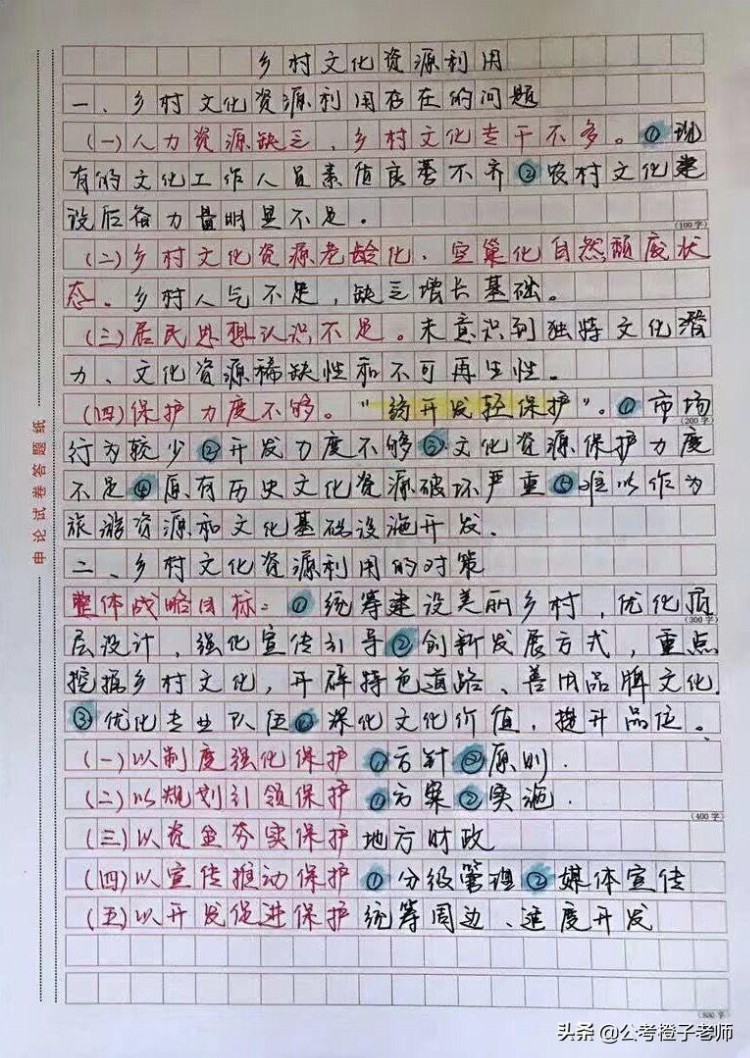 乡村文化资源利用
一、乡村文化资源利用存在的问题
(一)人力资源缺乏,乡村文化专干不多。①现
有的文化工作人员素质良莠不齐②农村文化建
设后备力量明显不足。
(100字)
(二)乡村文化资源老龄化、空巢化自然颓废状
态。乡村人气不足,缺乏增长基础。
(三)居民思想认识不足。未意识到独特文化潜
力、文化资源稀缺性和不可再生性。
(四)保护力度不够。"重开发轻保护"。①市场
(200字)
行为较少②开发力度不够③文化资源保护力度
不足④原有历史文化资源破坏严重⑤难以作为
旅游资源和文化基础设施开发.
二、乡村文化资源利用的对策
整体战略目标:①统筹建设美丽乡村,优化顶
(300字)
层设计,强化宣传引导②创新发展方式,重点
挖掘乡村文化,开辟特色道路、善用品牌文化.
③优化专业队伍④深化文化价值,提升品位。
(一)以制度强化保护 ①方针②原则.
(二)以规划引领保护 ①方案②实施.
(400字)
(三)以资金夯实保护 地方财政
(四)以宣传推动保护 ①分级管理②媒体宣传
(五)以开发促进保护 统筹周边、适度开发
(500字)
申论试卷答题纸
头条 @公考橙子老师